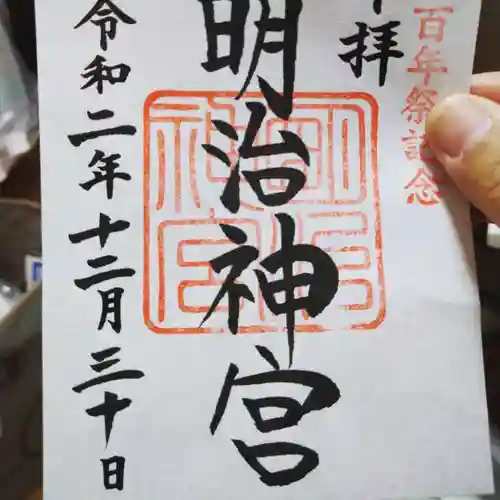 百年祭記念
拝
明治神宮
令和二年十二月三十日